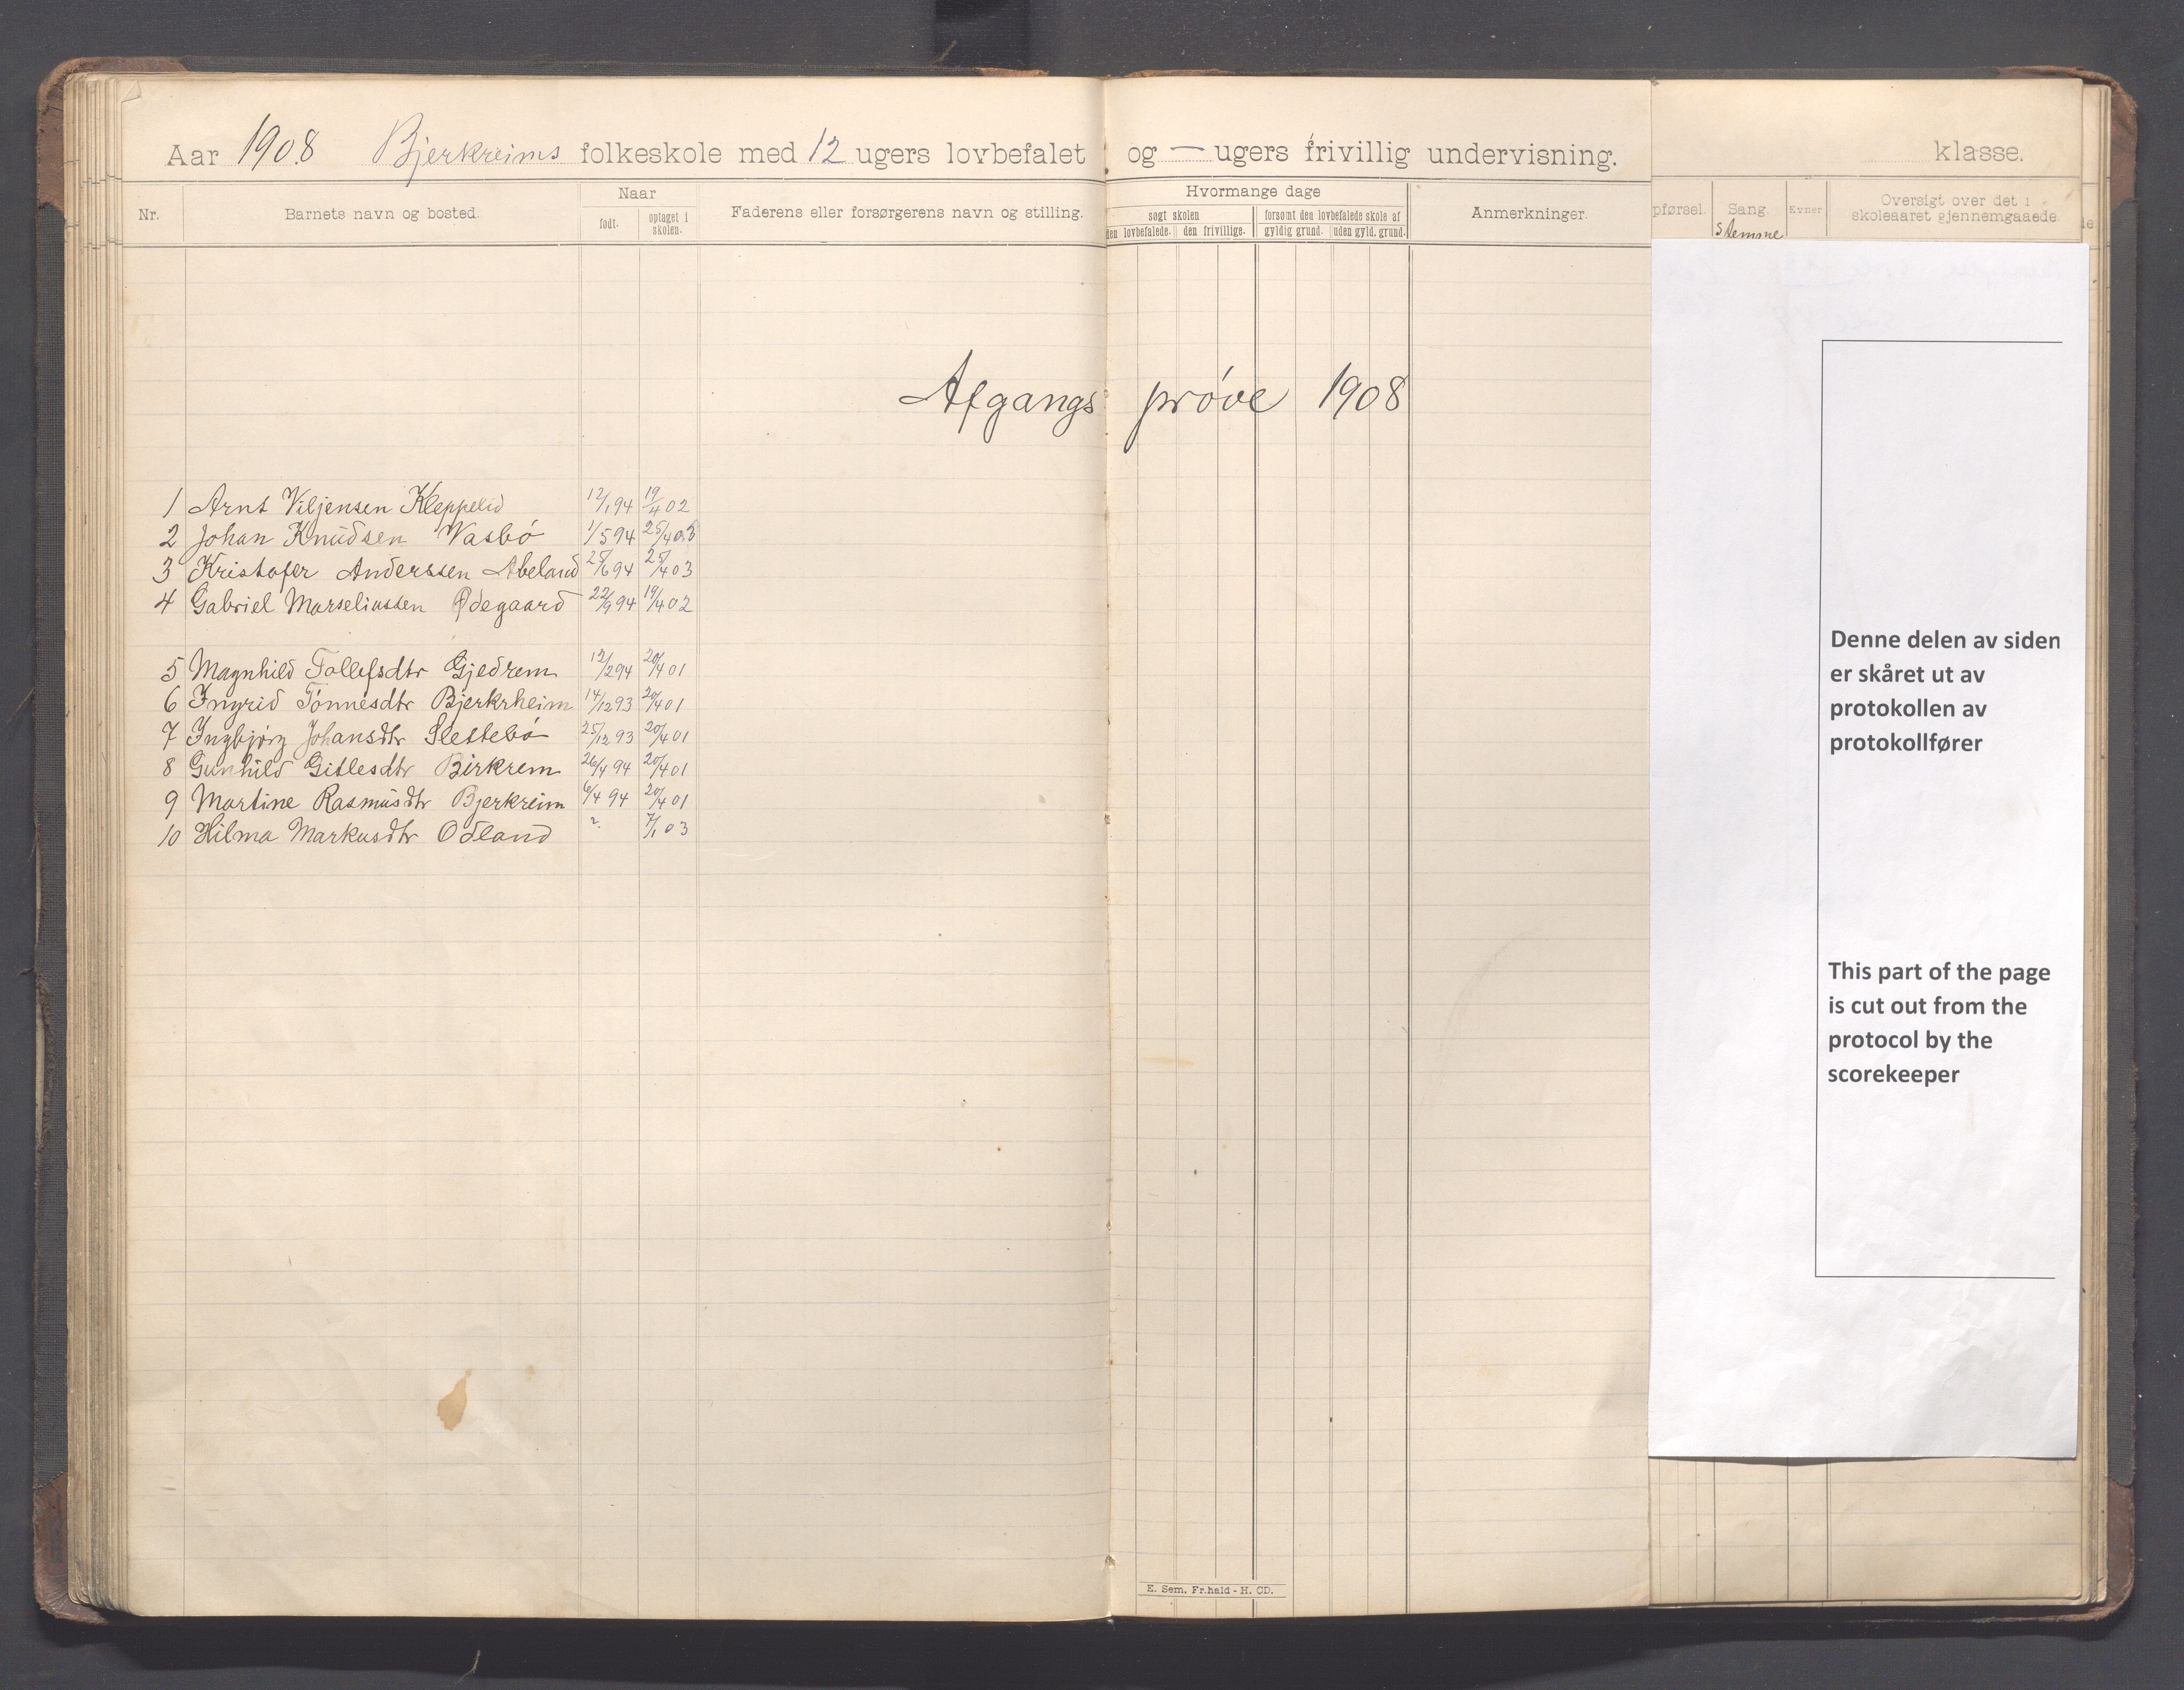 Aar 1908 Bjerkreims folkeskole med 12 ugers lovbefalet og — ugers frivillig undervisning.
klasse.
Nr.
Barnets navn og bosted.
Naar
født.
optaget i skolen.
Faderens eller forsørgerens navn og stilling.
Hvormange dage
søgt skolen
den lovbefalede.
den frivillige.
forsømt den lovbefalede skole af
gyldig grund.
uden gyld. grund.
Anmerkninger.
pførsel.
Sang.
Stemme
Evner
Oversigt over det i
skoleaaret gjennemgaaede.
Afgangs prøve 1908
1 Arnt Viljensen Kleppelid 12/1 94 19/4 02
2 Johan Knudsen Vasbø 1/5 94 25/4 03
3 Kristofer Anderssen Abeland 25/6 94 25/4 03
4 Gabriel Marseliussen Ødegaard 22/9 94 19/4 02
5 Magnhild Tollefsdtr Gjedrem 12/2 94 20/4 01
6 Ingrid Tønnesdtr Bjerkrheim 14/12 93 20/4 01
7 Ingbjørg Johansdtr Slettebø 25/12 93 20/4 01
8 Gunhild Gitlesdtr Birkrem 26/4 94 20/4 01
9 Martine Rasmusdtr Bjerkreim 6/4 94 20/4 01
10 Hilma Markusdtr Odland ? 7/1 03
Denne delen av siden
er skåret ut av
protokollen av
protokollfører
This part of the page
is cut out from the
protocol by the
scorekeeper
E. Sem, Fr.hald - H. CD.